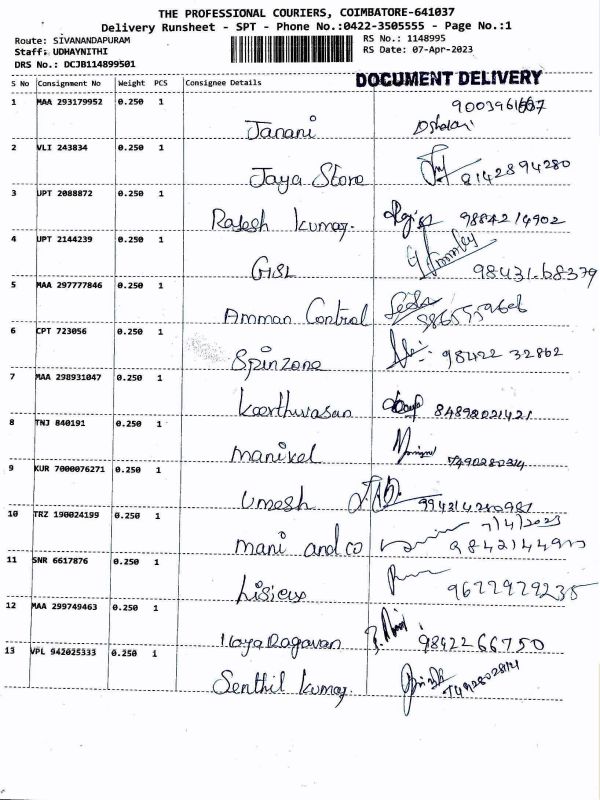 THE PROFESSIONAL COURIERS, COIMBATORE-641037
Delivery Runsheet - SPT - Phone No.:0422-3505555 - Page No.:1
Route: SIVANANDAPURAM RS No.: 1148995
Staff: UDHAYNITHI RS Date: 07-Apr-2023
DRS No.: DCJB114899501
S No Consignment No Weight PCS Consignee Details DOCUMENT DELIVERY
1 MAA 293179952 0.250 1
Janani
2 VLI 243834 0.250 1
Jaya Store 8142894280
3 UPT 2088872 0.250 1
Rajesh kumar. 9884214902
4 UPT 2144239 0.250 1
GISL 98431-68379
5 MAA 297777846 0.250 1
Amman Central
6 CPT 723056 0.250 1
Spinzone 98422 32862
7 MAA 298931047 0.250 1
keerthivasan 84892021421
8 TNJ 840191 0.250 1
manivel
9 KUR 7000076271 0.250 1
umesh
10 TRZ 190024199 0.250 1 7/4/2023
mani and co
11 SNR 6617876 0.250 1
9677979235
12 MAA 299749463 0.250 1
Ilaya Ragavan 9842266750
13 VPL 942025333 0.250 1
Senthil kumar.